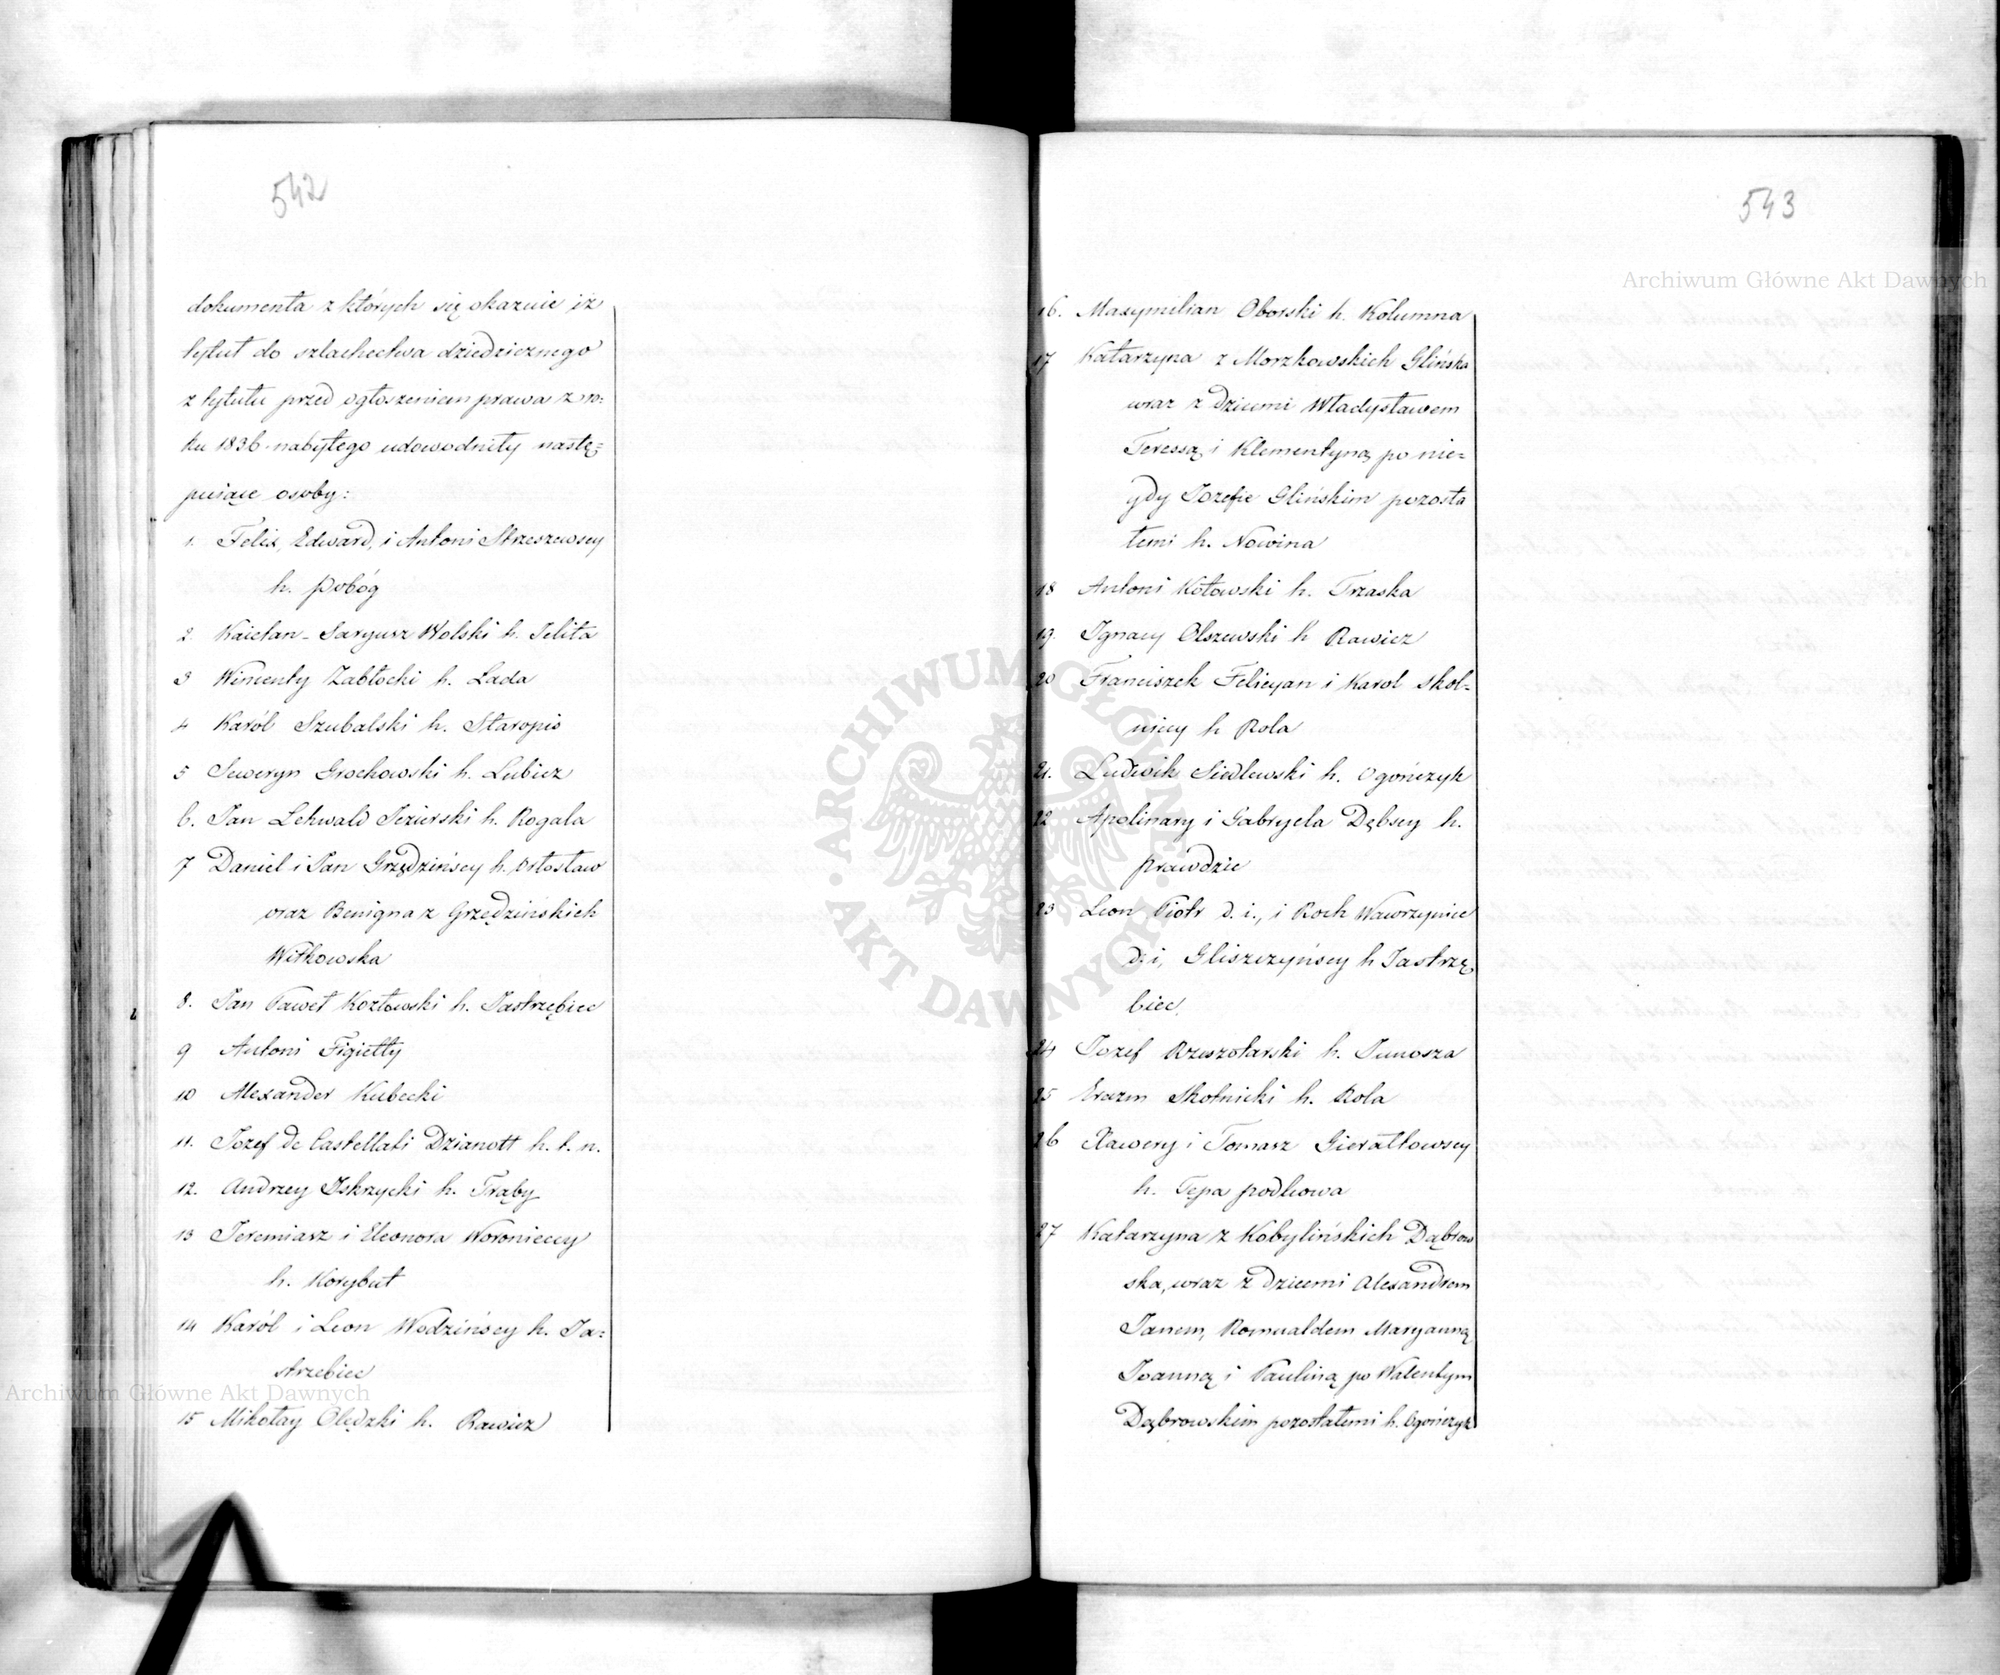 542
dokumenta z których się okazuie iż
tytuł do szlachectwa dziedzicznego
z tytułu przed ogłoszeniem prawa z ro=
ku 1836 nabytego udowodniły nastę=
puiące osoby:
1. Felix, Edward, i Antoni Strzeszewscy
h. Pobóg
2. Kaietan - Saryusz Wolski h. Jelita
3 Wincenty Zabłocki h. Łada
4 Karól Szubalski h. Staropis
5 Seweryn Grochowski h. Lubicz
6. Jan Lehwald Jezierski h. Rogala
7 Daniel i Jan Grzędzińscy h. Ostosław
oraz Benigna z Grzędzińskich
Witkowska
8. Jan Paweł Kozłowski h. Jastrzębiec
9 Antoni Figietty
10 Alexander Kubecki
11. Jozef de Castellati Dzianott h. t. n.
12. Andrzey Iskrzycki h. Trąby
13 Jeremiasz i Eleonora Woronieccy
h. Korybut
14 Karól i Leon Wodzińscy h. Ja=
strzebiec
15 Mikołay Olędzki h. Rawicz
543
16. Maxymilian Oborski h. Kolumna
17 Katarzyna z Morzkowskich Glińska
wraz z dziećmi Władysławem
Teressą i Klementyną po nie=
gdy Jozefie Glińskim pozosta
łemi h. Nowina
18 Antoni Kotowski h. Trzaska
19. Ignacy Olszewski h Rawicz
20 Franciszek Felicyan i Karol Skol=
niccy h Rola
21. Ludwik Siedlewski h. Ogończyk
22 Apolinary i Gabryela Dębscy h.
Prawdzic
23 Leon Piotr d. i., i Roch Wawrzyniec
d. i, Gliszczyńscy h Jastrzę
biec.
24 Jozef Rzeszotarski h. Junosza
25 Erazm Skotnicki h. Rola
26 Xawery i Tomasz Gierałtowscy
h. Tępa podkowa
27 Katarzyna z Kobylińskich Dąbrow
ska, wraz z dziećmi Alexandrem
Janem, Romualdem Maryanną
Joanną i Pauliną po Walentym
Dąbrowskim pozostałemi h. Ogończyk
Archiwum Główne Akt Dawnych
Archiwum Główne Akt Dawnych
ARCHIWUM GŁÓWNE · AKT DAWNYCH ·